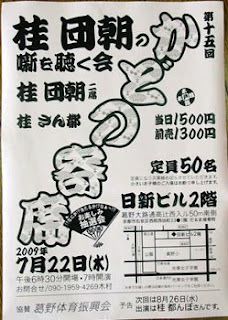 第十五回
かどの寄席
桂 団朝の
噺を聴く会
桂 団朝 二席
桂 さん都
当日1500円
前売1300円
定員50名
日新ビル2階
葛野大路通高辻西入ル50m南側
お楽しみ
抽選会
2009年
7月22日(水)
午後6時30分開場・7時開演
お問合せ/090-1959-4269木村
協賛 葛野体育振興会
予告 次回は8月26日(水)
出演は桂 都んぼさんです。